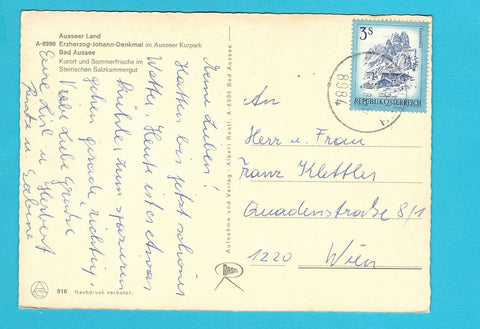 Ausseer Land
A-8990 Erzherzog-Johann-Denkmal im Ausseer Kurpark
Bad Aussee
Kurort und Sommerfrische im
Steirischen Salzkammergut
Meine Lieben!
Hatten bis jetzt schönes
Wetter. Heute ist es etwas
kühler zum spazieren
gehen gerade richtig.
Viele liebe Grüße
Eure Lisl u. Herbert
Tante u. Sabine
816 Nachdruck verboten.
Aufnahme und Verlag Albert Rastl, A 8990 Bad Aussee
RASTL
3s
REPUBLIK ÖSTERREICH
8984
An
Herr u. Frau
Franz Klettler
Quadenstraße 8/1
1220 Wien